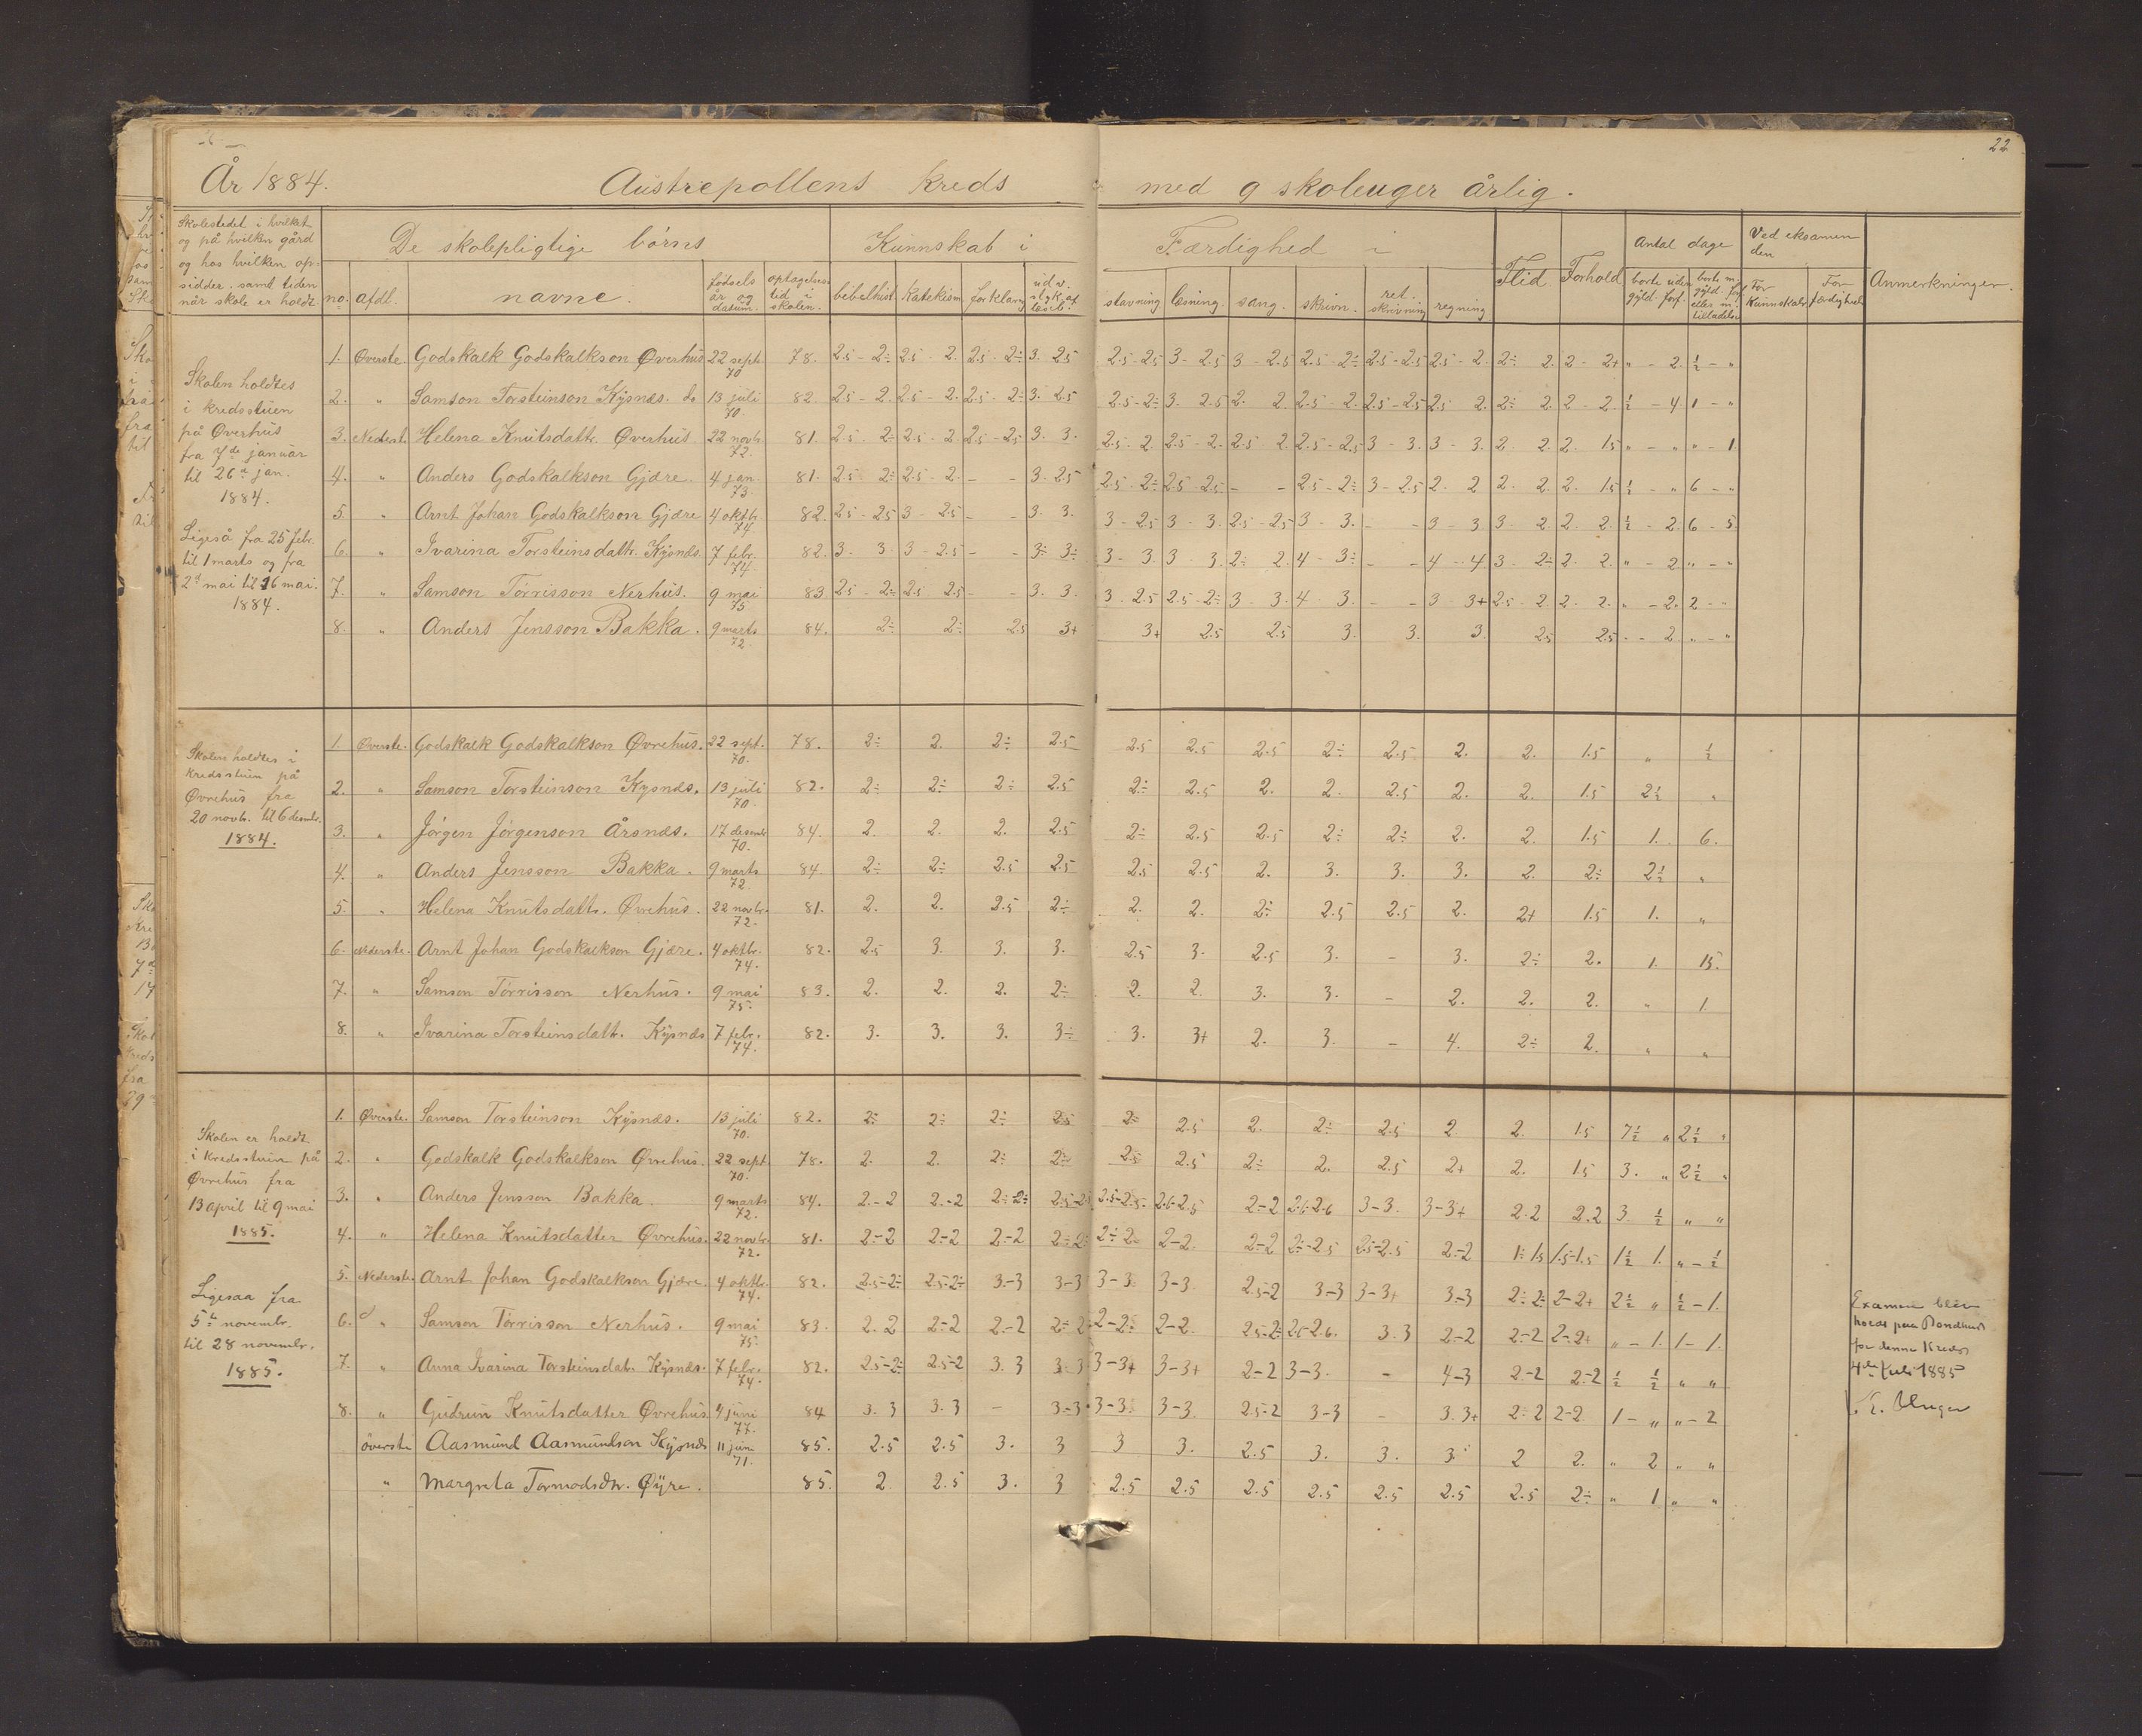 22
År 1884. Austrepollens kreds med 9 skoleuger årlig.
Skolestedet i hvilket og på hvilken gård og hos hvilken opsidder, samt tiden når skole er holdt.
De skolepligtige børns
Kunnskab i
Færdighed i
Flid.
Forhold.
Antal dage
Ved eksamen den
Anmerkninger.
no. afdl. navne. fødsels år og datum. optagelses tid i skolen. bibelhist. katekism. forklaring udv. styk. af læseb. stavning læsning. sang. skrivn. ret skrivning regning borte uden gyld. forf. borte m. gyld. forf. eller m. tilladelse For Kunnskab For færdighed
Skolen holdtes
i kredsstuen
på Øverhus
fra 7de januar
til 26d jan.
1884.
Ligeså fra 25 febr.
til 1 marts og fra
2d mai til 16 mai.
1884.
1. Øverste. Godskalk Godskalkson Øverhus 22 sept. 70 78. 2.5 - 2÷ 2.5 2. 2.5 - 2÷ 3. 2.5 2.5-2.5 3 - 2.5 3 - 2.5 2.5 - 2÷ 2.5-2.5 2.5 - 2. 2÷ 2. 2 - 2+ " - 2. ½ - "
2. " Samson Torsteinson Kysnæs. 13 juli 70. 82. 2.5 - 2. 2.5 - 2. 2.5 - 2÷ 3. 2.5 2.5-2÷ 3. 2.5 2. 2. 2.5 - 2. 2.5-2.5 2.5 2. 2÷ 2. 2 - 2. ½ - 4. 1 - "
3. Nederst. Helena Knutsdattr. Øverhus 22 novb. 72. 81. 2.5 - 2÷ 2.5 - 2 2.5 - 2.5 3. 3. 2.5 - 2 2.5 - 2. 2.5 2 2.5 - 2.5 3 - 3. 3 - 3. 2. 2. 2. 1.5 " - " " - 1
4. " Anders Godskalkson Gjære. 4 jan. 73. 81. 2.5 2÷ 2.5 - 2. - - 3. 2.5 2.5 - 2÷ 2.5 - 2.5 - - 2.5 - 2÷ 3 - 2.5 2. 2 2. 2. 2. 1.5 ½ - " 6 - "
5. " Arnt Johan Godskalkson Gjære 4 oktb. 74 82. 2.5 - 2.5 3 - 2.5 - - 3. 3. 3 - 2.5 3 - 3. 2.5 - 2.5 3 - 3. - - 3 - 3 3 - 2. 2. 2. ½ - 2. 6 - 5
6. " Ivarina Torsteinsdattr. Kysnæs. 7 febr. 74. 82. 3. 3 3 - 2.5 - - 3÷ 3÷ 3 - 3. 3 - 3. 2÷ 2. 4 - 3÷ - - 4 - 4 3 - 2÷ 2. 2. " - 2 " - "
7. " Samson Tørrisson Nerhus. 9 mai 75 83 2.5 - 2÷ 2.5 2.5 - - 3. 3. 3. 2.5 2.5 - 2÷ 3 - 3. 4 - 3. - - 3 3+ 2.5 - 2 2. 2. " - 2. 2 - -
8. " Anders Jensson Bakka. 9 marts 72 84. 2÷ 2÷ 2.5 3+ 3+ 2.5 2.5 3. 3. 3. 2.5 2.5 - - 2 " - "
Skolen holdtes i
kredsstuen på
Øvrehus fra
20 novb. til 6 desmbr.
1884.
1. Øverste. Godskalk Godskalkson Øvrehus. 22 sept. 70. 78. 2÷ 2. 2÷ 2.5 2.5 2.5 2.5 2÷ 2.5 2. 2. 1.5 " ½
2. " Samson Torsteinson Kysnæs. 13 juli 70. 82. 2÷ 2÷ 2÷ 2.5 2÷ 2.5 2. 2. 2.5 2. 2. 1.5 2½ "
3. " Jørgen Jørgenson Årsnæs. 17 desmbr 70. 84. 2. 2. 2. 2.5 2÷ 2.5 2.5 2÷ 2÷ 2. 2. 1.5 1. 6.
4. " Anders Jensson Bakka. 9 marts 72. 84 2÷ 2÷ 2.5 2.5 2.5 2.5 2. 3. 3. 3. 2. 2÷ 2½ "
5. " Helena Knutsdattr. Øvrehus. 22 novbr. 72. 81. 2. 2. 2.5 2÷ 2. 2. 2÷ 2.5 2.5 2. 2+ 1.5 1. "
6. Nederste. Arnt Johan Godskalkson Gjære. 4 oktbr. 74. 82. 2.5 3. 3. 3. 2.5 3. 2.5 3. - 3. 2÷ 2. 1. 15.
7. " Samson Tørrisson Nerhus. 9 mai 75. 83. 2. 2. 2. 2÷ 2. 2. 3. 3. - 2. 2. 2. " 1
8. " Ivarina Torsteinsdattr. Kysnæs 7 febr. 74. 82. 3. 3. 3. 3÷ 3. 3+ 2. 3. - 4. 2÷ 2. " "
Skolen er holdt
i kredsstuen på
Øvrehus fra
13 april til 9 mai
1885.
Ligesaa fra
5te novembr.
til 28 novembr.
1885.
1. Øverste. Samson Torsteinson Kysnæs. 13 juli 70. 82. 2÷ 2÷ 2÷ 2.5 2÷ 2.5 2. 2÷ 2.5 2 2. 1.5 7½ " 2½ "
2. " Godskalk Godskalkson Øvrehus. 22 sept. 70. 78. 2. 2. 2÷ 2÷ 2.5 2.5 2÷ 2. 2.5 2+ 2. 1.5 3. " 2½ "
3. " Anders Jensson Bakka. 9 marts 72. 84. 2.-2 2.-2 2÷-2÷ 2.5-2.5 2.5-2.5 2.6-2.5 2-2 2.6 2.6 3-3. 3-3+ 2.2 2.2 3. ½ " "
4. " Helena Knutsdatter Øvrehus. 22 novbr. 72. 81. 2.-2 2.-2 2.-2 2÷2÷ 2÷2. 2-2. 2-2 2÷-2.5 2.5-2.5 2.-2 1÷1.5 1.5-1.5 1½ 1. " - ½
5. Nederste. Arnt Johan Godskalkson Gjære. 4 oktbr. 74. 82. 2.5-2÷ 2.5-2÷ 3.-3 3-3 3-3 3-3. 2.5-2 3-3 3-3+ 3-3 2÷2÷ 2-2+ 2½ " ½-1.
6. " Samson Tørrisson Nerhus. 9 mai 75. 83. 2. 2 2-2 2.-2 2÷2 2-2÷ 2-2. 2.5-2÷ 2.5-2.6. 3.3 2-2 2-2 2-2+ " - 1. 1 - 1.
7. " Anna Ivarina Torsteinsdatr. Kysnæs. 7 febr. 74. 82. 2.5-2÷ 2.5-2 3. 3 3. 3 3-3+ 3-3+ 2-2 3-3. - 4-3 2.-2 2-2 ½ ½ " "
8. " Gudrun Knutsdatter Øvrehus. 4 juni 77. 84 3. 3 3. 3 - 3-3 3-3. 3-3. 2.5-2 3-3 - 3. 3+ 2÷2 2-2. 1 - " " - 2
överste Aasmund Aasmundson Kysnæs 11 juni 71. 85. 2.5 2.5 3. 3 3 3. 2.5 3. 3. 3. 2 2. " 2 " "
" Margreta Tormodsdtr. Øyre. 85. 2. 2.5 3. 3 2.5 2.5 2.5 2.5 2.5 2.5 2.5 2÷ " 1 " "
Examen blev
holdt paa Bondhus
for denne Kreds
4de Juli 1885